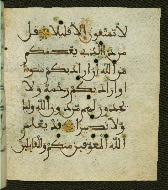 لا تمتعون إلا قليلا قل
من ذا الذي يعصمكم
من الله إن أراد بكم سوءا
أو أراد بكم رحمة ولا
يجدون لهم من دون الله وليا
ولا نصيرا قد يعلم
الله المعوقين منكم والقائلين